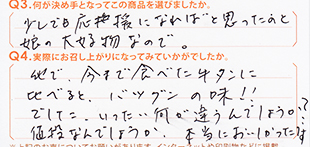 Q3.何が決め手となってこの商品を選びましたか。
少しでも応援になればと思ったのと
娘の大好物なので。
Q4.実際にお召し上がりになってみていかがでしたか。
他で、今まで食べた牛タンに
比べると、バツグンの味!!
でした。いったい何が違うんでしょうか?
値段なんでしょうか、本当においしかったです